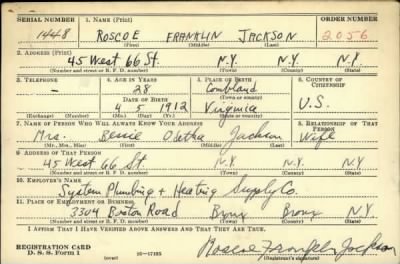 SERIAL NUMBER 1. NAME (Print) ORDER NUMBER
1448 ROSCOE FRANKLIN JACKSON 2056
(First) (Middle) (Last)
2. ADDRESS (Print)
45 West 66 St. N.Y. N.Y. N.Y.
(Number and street or R. F. D. number) (Town) (County) (State)
3. TELEPHONE 4. AGE IN YEARS 5. PLACE OF BIRTH 6. COUNTRY OF CITIZENSHIP
- 28 Combland
DATE OF BIRTH (Town or county)
4 5 1912 Virginia U.S.
(Exchange) (Number) (Mo.) (Day) (Yr.) (State or country)
7. NAME OF PERSON WHO WILL ALWAYS KNOW YOUR ADDRESS 8. RELATIONSHIP OF THAT PERSON
Mrs. Bessie Jackson Wife
(Mr., Mrs., Miss) (First) (Middle) (Last)
9. ADDRESS OF THAT PERSON
45 West 66 St N.Y. N.Y. N.Y.
(Number and street or R. F. D. number) (Town) (County) (State)
10. EMPLOYER'S NAME
System Plumbing + Heating Supply Co.
11. PLACE OF EMPLOYMENT OR BUSINESS
3304 Boston Road Bronx Bronx N.Y.
(Number and street or R. F. D. number) (Town) (County) (State)
I AFFIRM THAT I HAVE VERIFIED ABOVE ANSWERS AND THAT THEY ARE TRUE.
REGISTRATION CARD
D. S. S. Form 1 (over) 16-17105 Roscoe Franklin Jackson
(Registrant's signature)